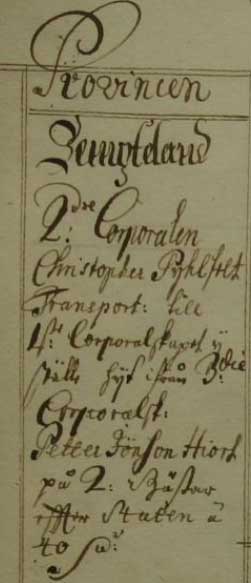 Provincen
Jempteland
2:dre Corporalen
Christopher Pyhlfelt
Transport: till
1st: Corporalskapet y
ställe hyt ifrån 3:die
Corporalsk:
Petter Jönson Hiort
på 2: Hästar
efter Staten å
40